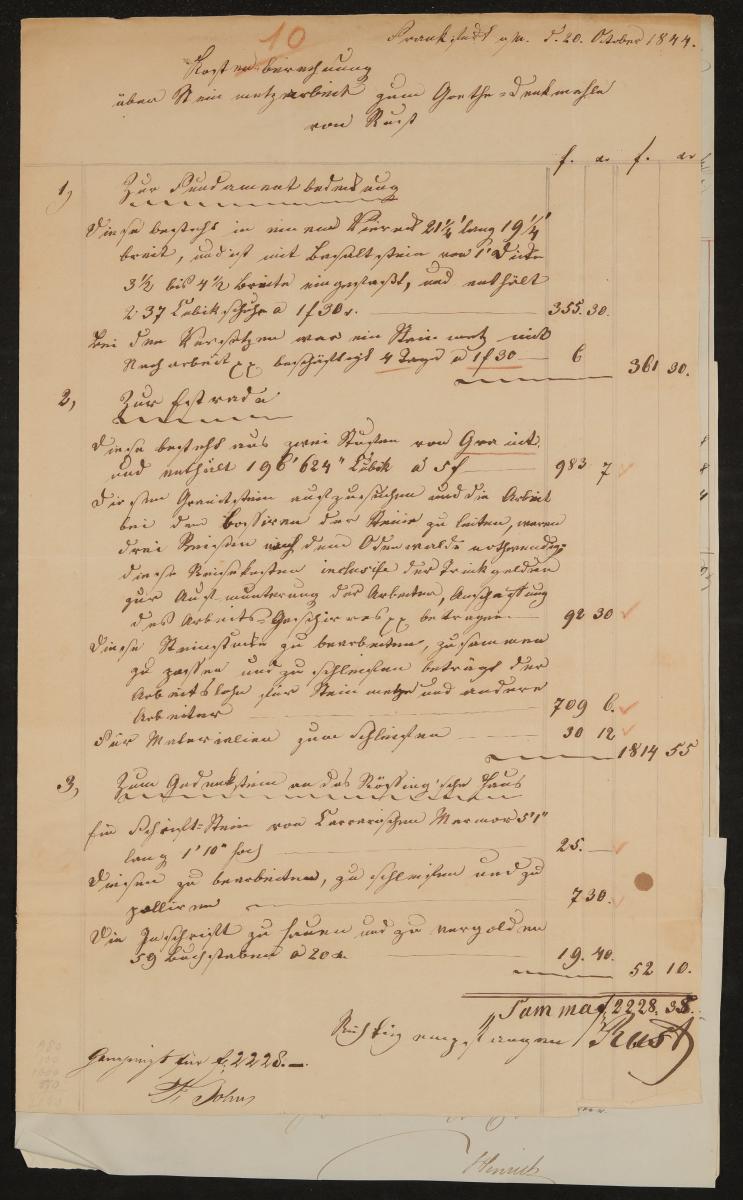 10
Frankfurt a/m. d. 20. October 1844.
Kostenberechnung
über Steinmetzarbeit zum Goethe=Denkmahle
von Rust
f. x. f. xr
1, Zur Fundamentbedeckung
Diese besteht in einem Viereck 21¼' lang 19¼'
breit, und ist mit Basaltstein von 1' Dicke
3½ bis 4½ Breite eingefaßt, und enthält
237 Cubikschuhe a 1f 30x. 355. 30.
Bei dem Versetzen war ein Steinmetz mit
Nacharbeit beschäftigt 4 Tage a 1f 30 6
361 30.
2, Zur Estrade
Diese besteht aus zwei Stufen von Granit
und enthält 196' 624" Cubik à 5f 983 7
Diesen Granitstein auszusuchen und die Arbeit
bei dem Bossiren der Steine zu leiten, waren
drei Reisen nach dem Odenwalde nothwendig;
diese Reisekosten inclusife der Trinkgelder
zur Aufmunterung der Arbeiter, Anschaffung
des Arbeits=Geschirres betragen 92 30
Diese Steinstücke zu bearbeiten, zusammen
zu passen und zu schleifen beträgt der
Arbeitslohn für Steinmetze und andere
Arbeiter 709 6.
Für Materialien zum Schleifen 30 12
1814 55
3, Zum Gedenkstein an das Rössing'sche Haus
Ein Schrift=Stein von Carrarischen Marmor 5'1"
lang 1' 10" hoch 25.
Diesen zu bearbeiten, zu schleifen und zu
polliren 7 30.
Die Inschrift zu hauen und zu vergolden
59 Buchstaben a 20x. 19. 40.
52 10.
Summa f 2228. 35.
Richtig empfangen Rust
Genehmigt für f. 2228.
Heinrich